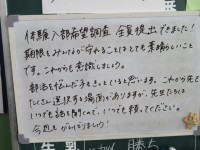 体験入部希望調査 全員提出できました!
期限をみんなが守れることはとても素晴らしいこと
です。これからも意識しましょう。
部活を悩んだ子もきっといると思います。これから先も
たくさん選択する場面がありますが、先生たちは
いつでも話を聞くので、いつでも頼ってください。
今週もがんばりましょう!